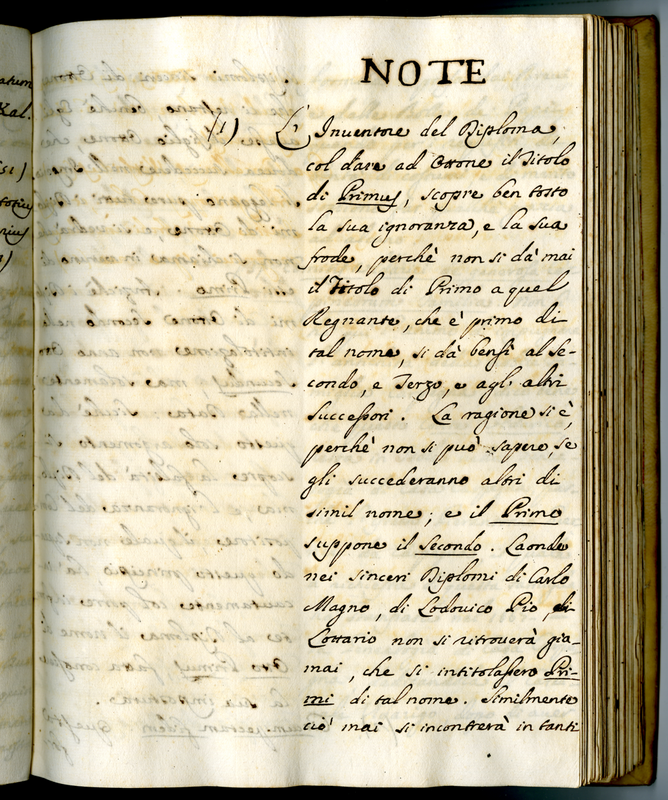 atum
Kal.
NOTE
(1) L' Inventore del Diploma,
col dare ad Ottone il Titolo
di Primus, scopre ben tosto
la sua ignoranza, e la sua
frode, perchè non si dà mai
il Titolo di Primo a quel
Regnante, che è primo di
tal nome, si dà bensì al Se-
condo, e Terzo, e agl' altri
successori. La ragione si è,
perchè non si può sapere, se
gli succederanno altri di
simil nome; e il Primo
suppone il Secondo. Laonde
nei sinceri Diplomi di Carlo
Magno, di Lodovico Pio, di
Lottario non si ritroverà gia-
mai, che si intitolassero Pri-
mi di tal nome. Similmente
ciò mai si incontrerà in tanti